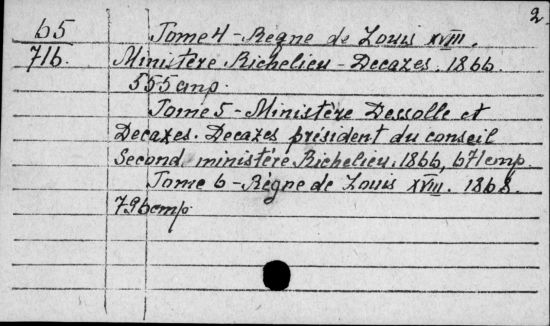 2.
65 Tome 4 - Règne de Louis XVIII.
716. Ministère Richelieu - Decazes. 1866.
555 cmp.
Tome 5 - Ministère Dessolle et
Decazes. Decazes président du conseil
Second ministère Richelieu. 1866, 671 cmp.
Tome 6 - Règne de Louis XVIII. 1868.
796 cmp